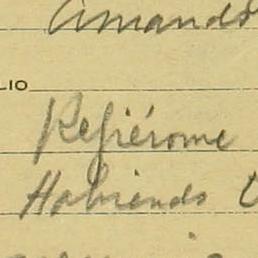 Amando
LIO
Refiérome
Habiendo